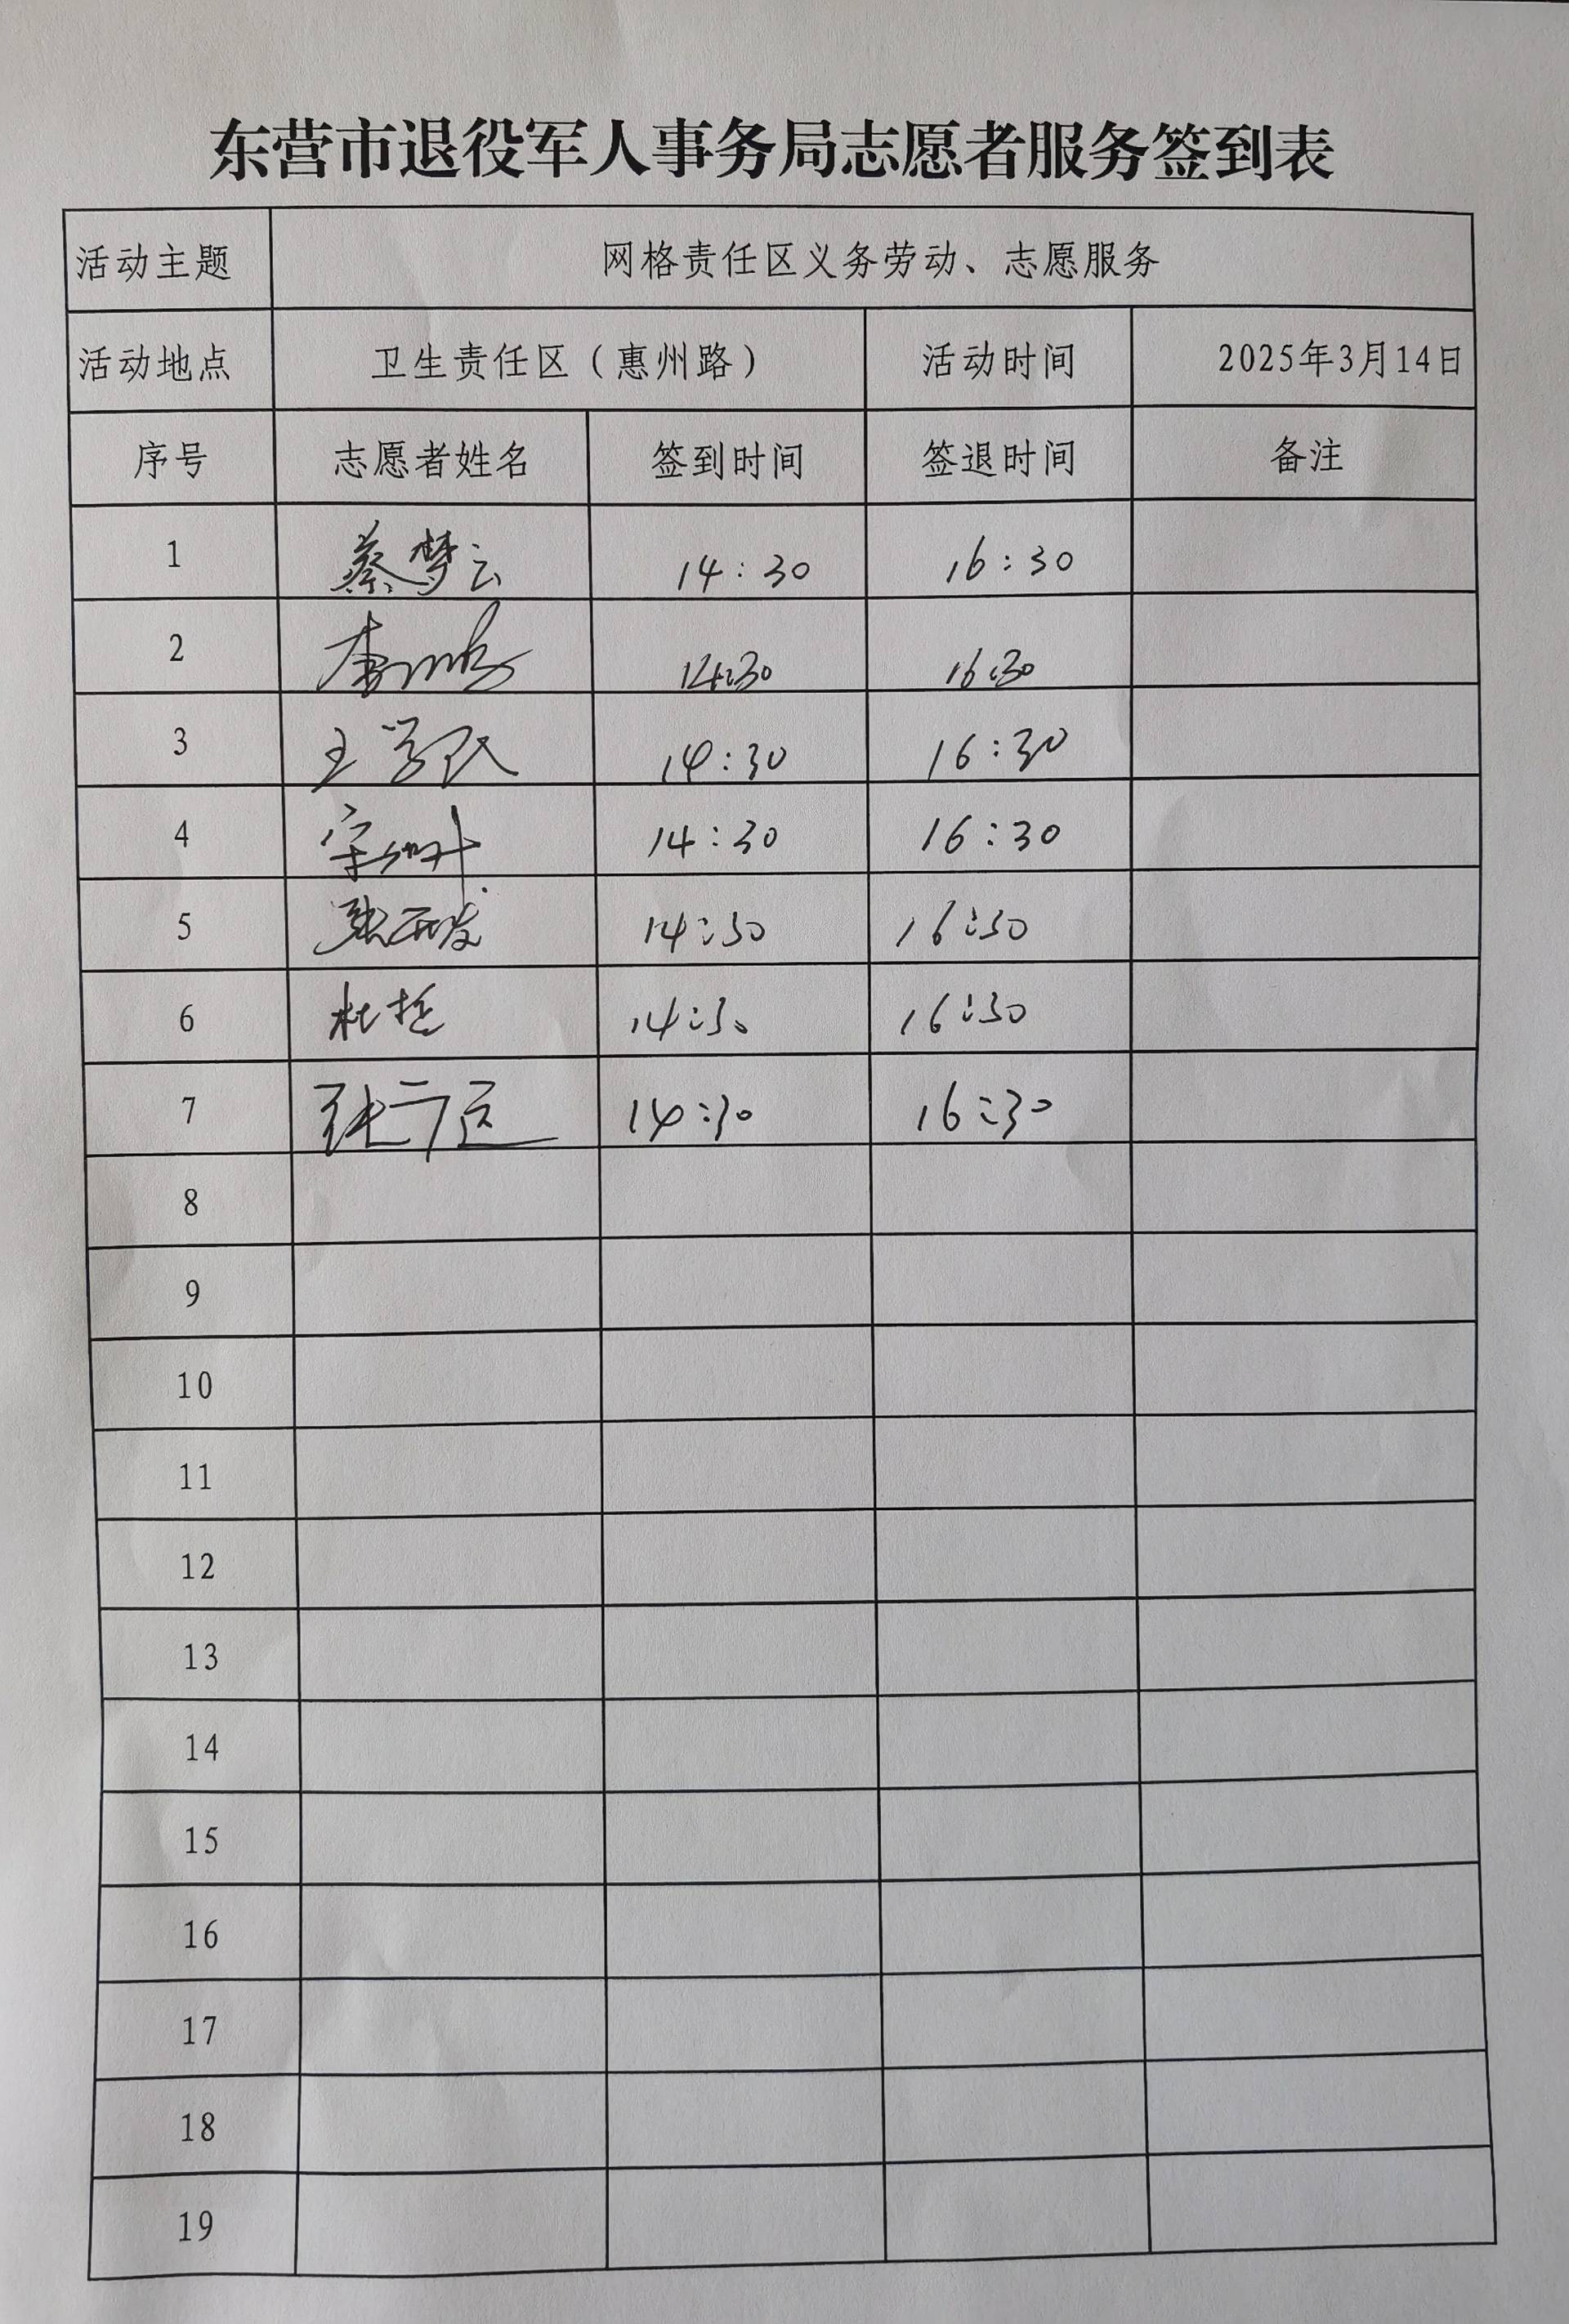 东营市退役军人事务局志愿者服务签到表
活动主题 网格责任区义务劳动、志愿服务
活动地点 卫生责任区（惠州路） 活动时间 2025年3月14日
序号 志愿者姓名 签到时间 签退时间 备注
1 蔡梦云 14:30 16:30
2 14:30 16:30
3 王学民 14:30 16:30
4 14:30 16:30
5 14:30 16:30
6 杜哲 14:30 16:30
7 14:30 16:30
8
9
10
11
12
13
14
15
16
17
18
19